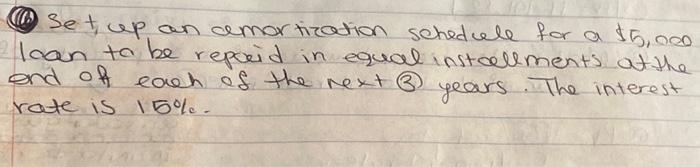 ⑩ Set up an amortization schedule for a $5,000
loan to be repaid in equal installments at the
end of each of the next ③ years. The interest
rate is 15%.